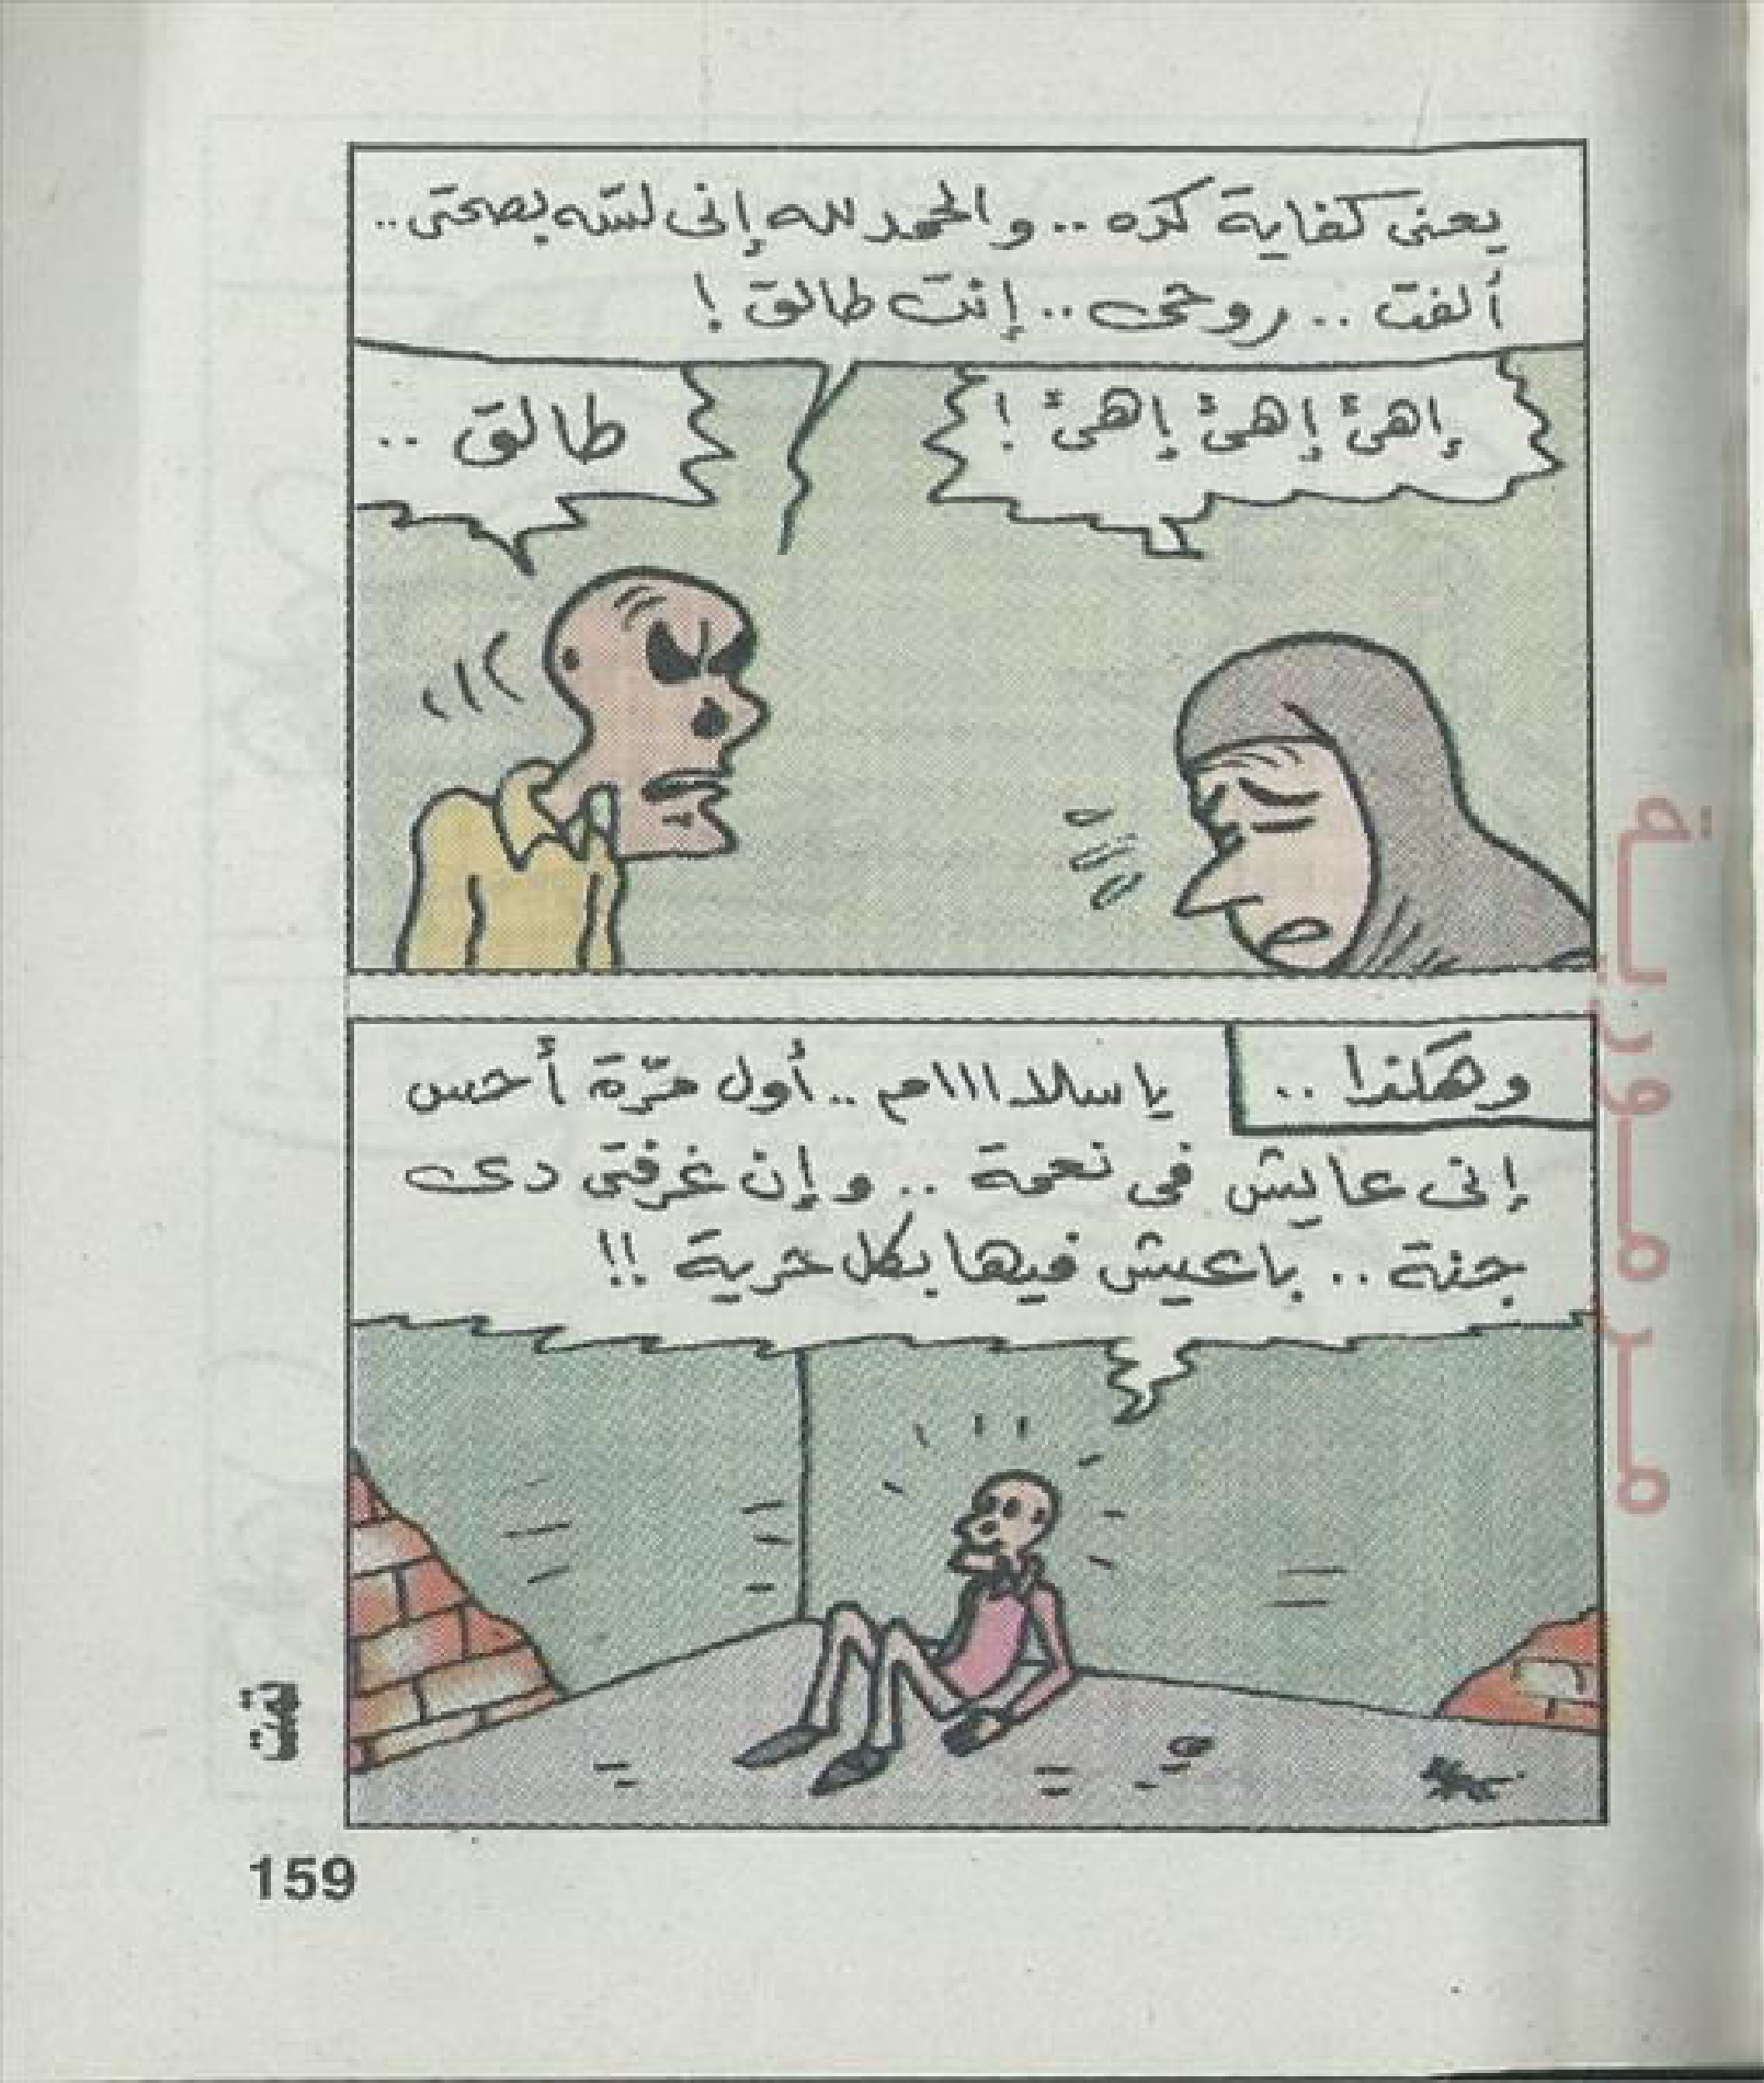 يعنى كفاية كده .. والحمد لله إنى لسّه بصحتى ..
ألفت .. روحى .. إنت طالق !
إهئ إهئ إهئ !
طالق ..
وهكذا ..
يا سلااااام .. أول مرّة أحس
إنى عايش فى نعمة .. وإن غرفتى دى
جنة .. باعيش فيها بكل حرية !!
تمت
159
مرمورية